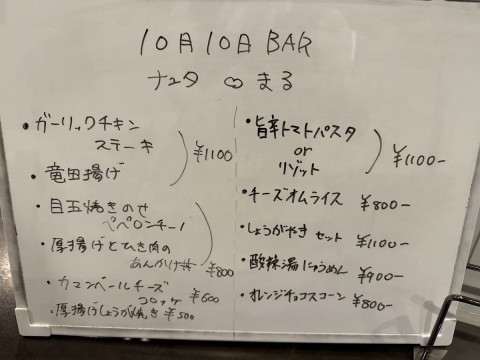 10月10日 BAR
ナュタ ∞ まる
・ガーリックチキン
ステーキ
・竜田揚げ
¥1100
・目玉焼きのせ
ペペロンチーノ
・厚揚げとひき肉の
あんかけ丼
¥800
・カマンベールチーズ
コロッケ ¥600
・厚揚げしょうが焼き ¥500
・旨辛トマトパスタ
or
リゾット
¥1100-
・チーズオムライス ¥800-
・しょうがやき セット ¥1100-
・酸辣湯にゅうめん ¥900-
・オレンジチョコスコーン ¥800-